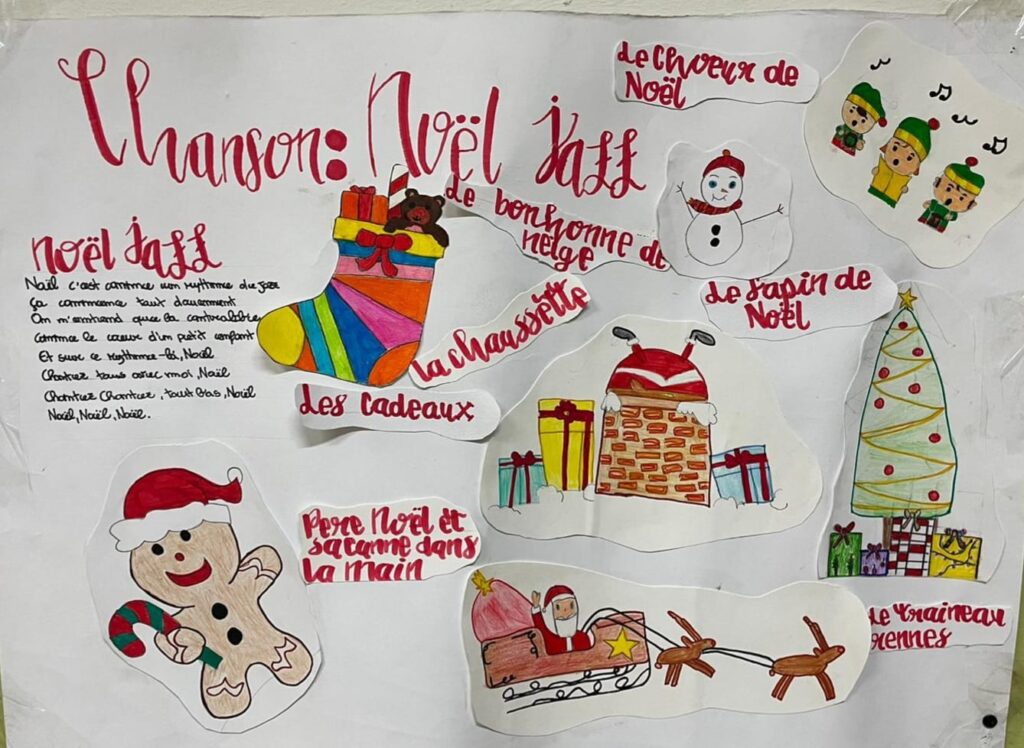 Chanson: Noël Jazz
Le Choeur de
Noël
Le bonhonne de
neige
Noël Jazz
Noël c'est comme un rythme du jazz
ça commence tout doucement
On n'entend que la contrebasse
comme le coeur d'un petit enfant
Et sur ce rythme-là, Noël
Chantez tous avec moi, Noël
Chantez Chantez, tout bas, Noël
Noël, Noël, Noël.
La chaussètte
Le Sapin de
Noël
Les cadeaux
Pere Noël èt
sa canne dans
la main
Le traineau
rennes